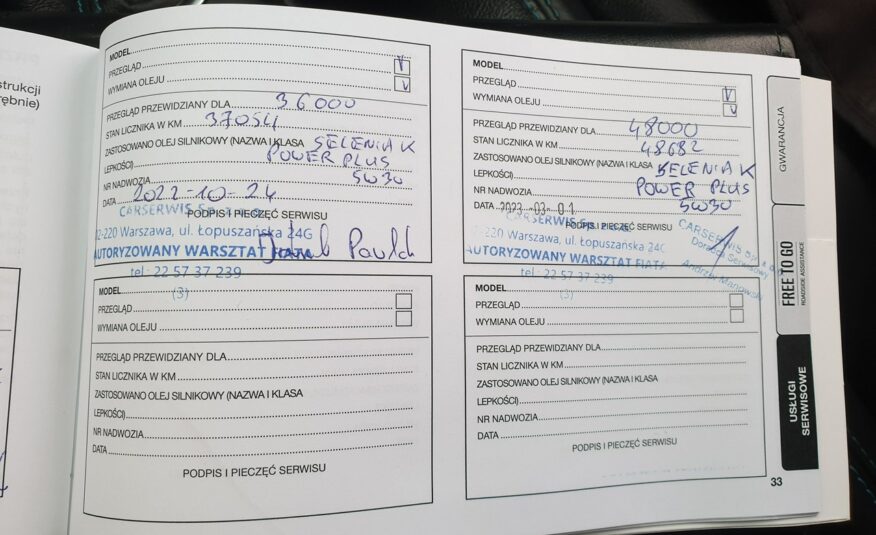 strukcji
rębnie)
MODEL
PRZEGLĄD V
WYMIANA OLEJU V
PRZEGLĄD PRZEWIDZIANY DLA 36000
STAN LICZNIKA W KM 37054
ZASTOSOWANO OLEJ SILNIKOWY (NAZWA I KLASA SELENIA K
LEPKOŚCI) POWER PLUS
NR NADWOZIA 5W30
DATA 2022-10-24
PODPIS I PIECZĘĆ SERWISU
CARSERWIS Sp.
02-220 Warszawa, ul. Łopuszańska 24G
AUTORYZOWANY WARSZTAT FIATA
tel.: 22 57 37 239
(3)
MODEL
PRZEGLĄD
WYMIANA OLEJU
PRZEGLĄD PRZEWIDZIANY DLA
STAN LICZNIKA W KM
ZASTOSOWANO OLEJ SILNIKOWY (NAZWA I KLASA
LEPKOŚCI)
NR NADWOZIA
DATA
PODPIS I PIECZĘĆ SERWISU
MODEL
PRZEGLĄD V
WYMIANA OLEJU V
PRZEGLĄD PRZEWIDZIANY DLA 48000
STAN LICZNIKA W KM 48682
ZASTOSOWANO OLEJ SILNIKOWY (NAZWA I KLASA SELENIA K
LEPKOŚCI) POWER PLUS
NR NADWOZIA 5W30
DATA 2023-03-01
PODPIS I PIECZĘĆ SERWISU
CARSERWIS Sp. z o.o.
220 Warszawa, ul. Łopuszańska 24G
AUTORYZOWANY WARSZTAT FIATA
tel.: 22 57 37 239
(3)
CARSERWIS Sp. z o.o.
Doradca Serwisowy
Andrzej Manowski
MODEL
PRZEGLĄD
WYMIANA OLEJU
PRZEGLĄD PRZEWIDZIANY DLA
STAN LICZNIKA W KM
ZASTOSOWANO OLEJ SILNIKOWY (NAZWA I KLASA
LEPKOŚCI)
NR NADWOZIA
DATA
PODPIS I PIECZĘĆ SERWISU
GWARANCJA
FREE TO GO
ROADSIDE ASSISTANCE
USŁUGI
SERWISOWE
33